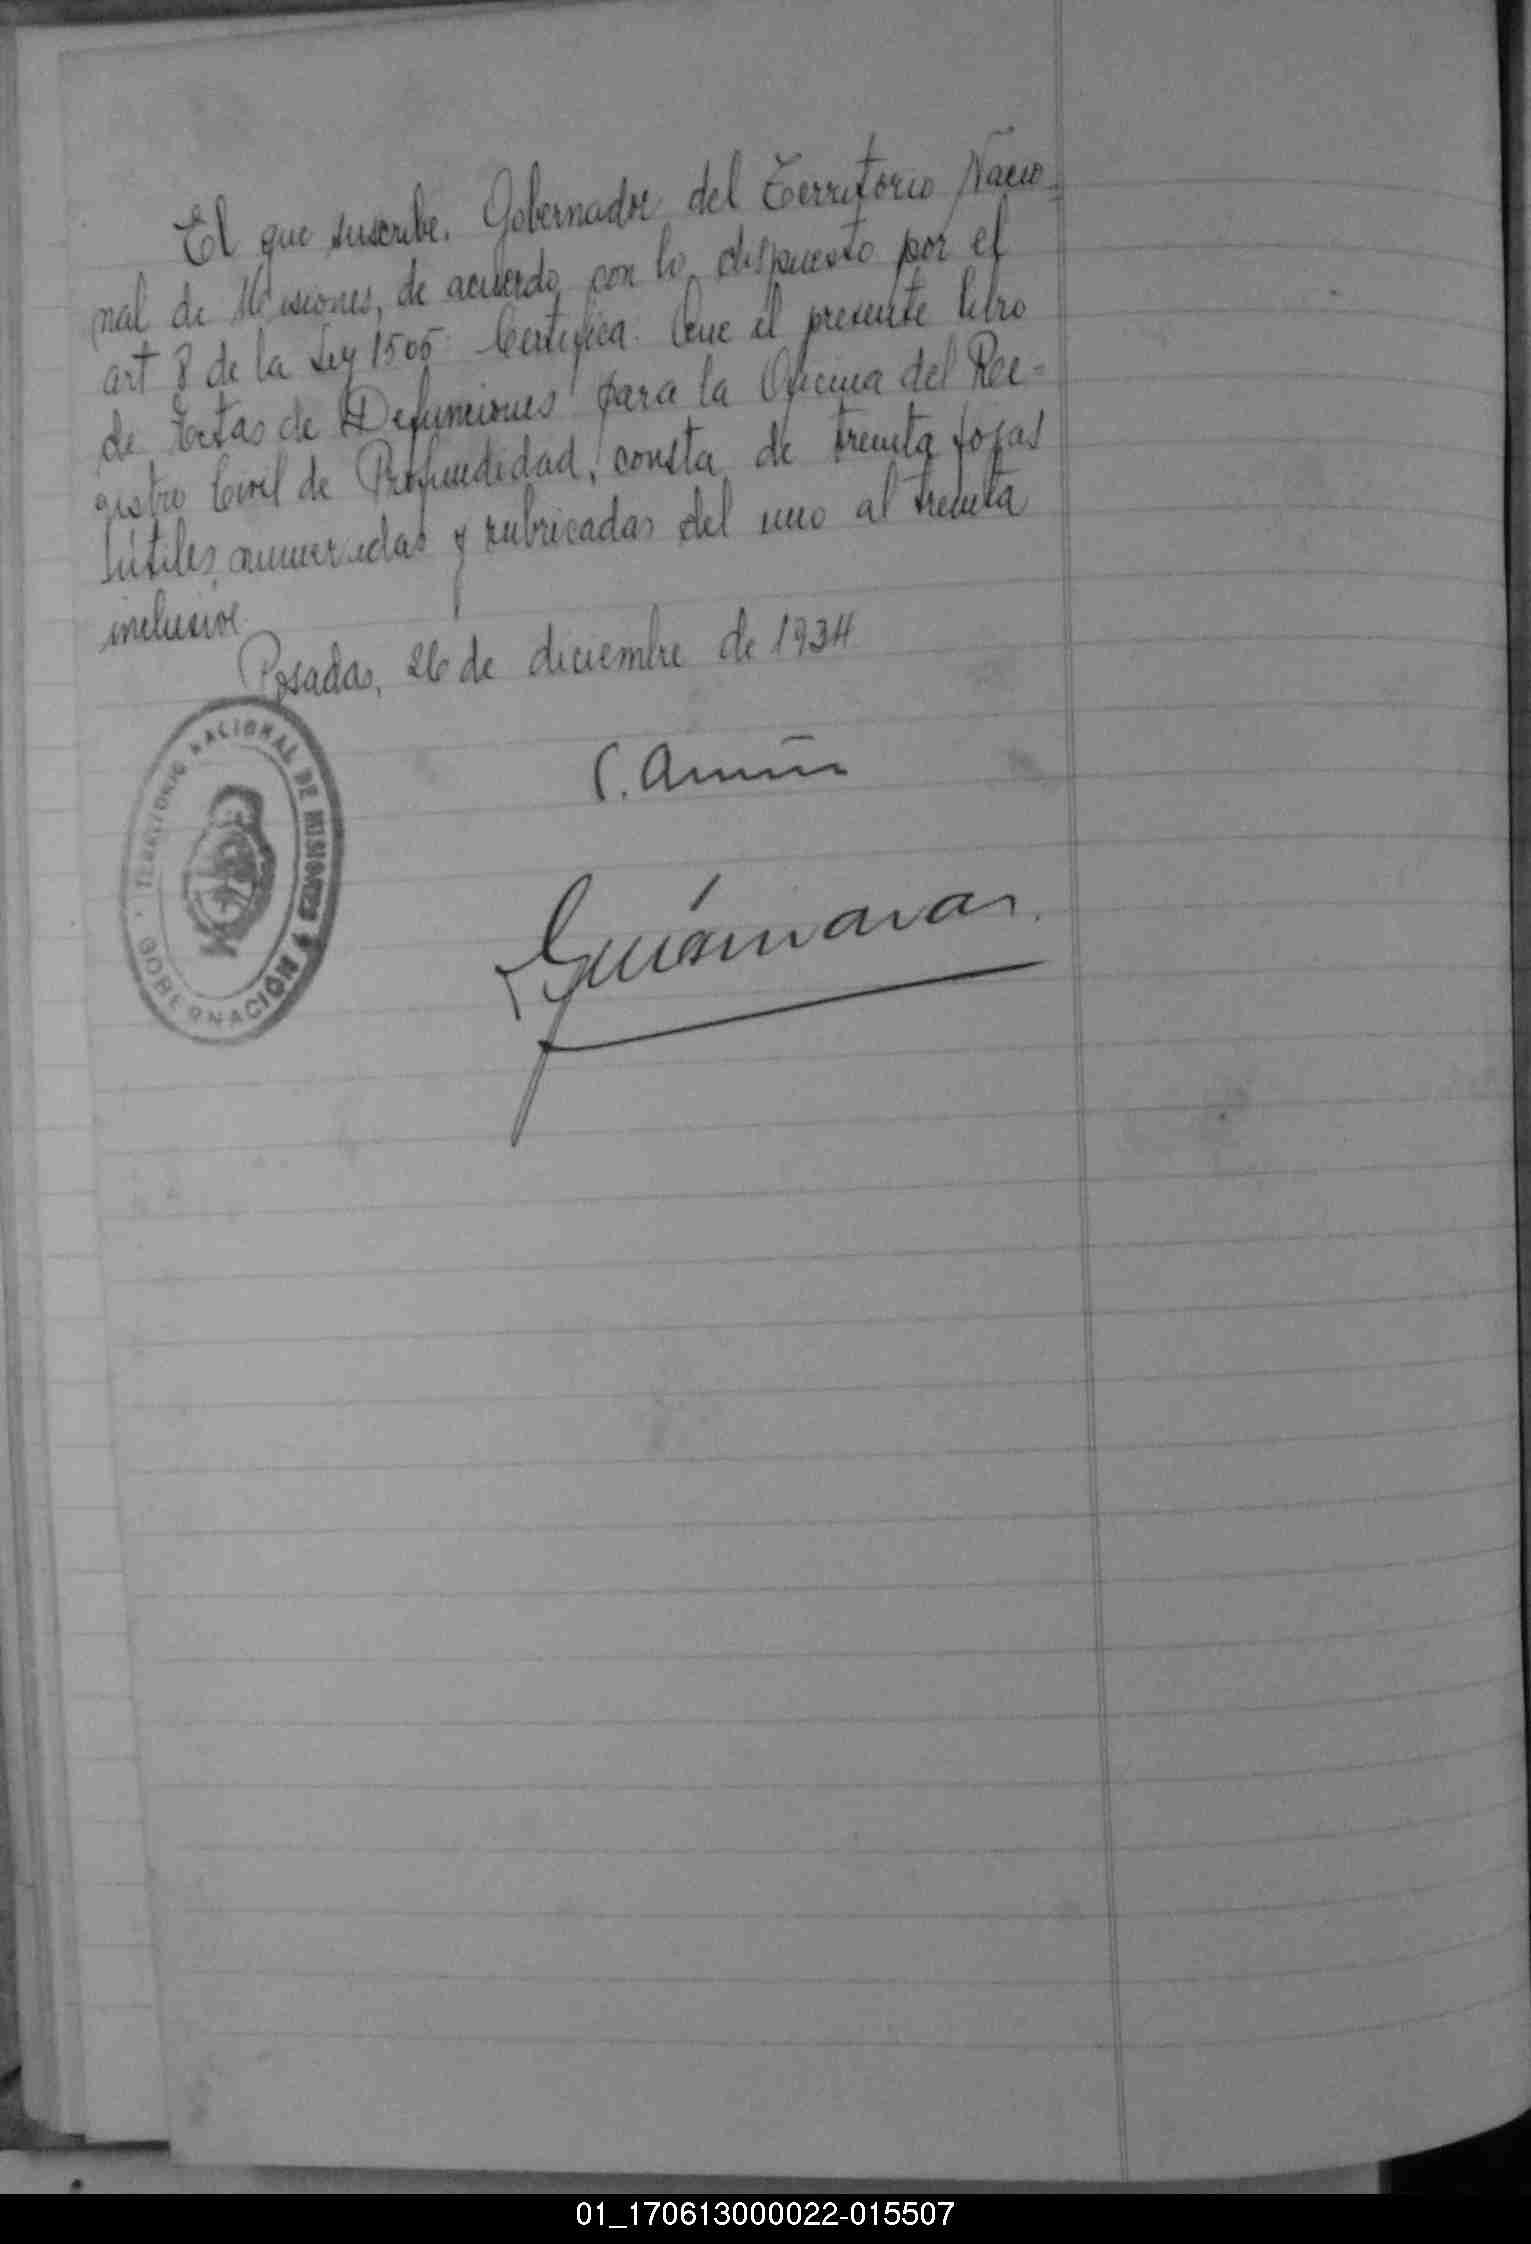 El que suscribe. Gobernador del Territorio Nacio-
nal de Misiones, de acuerdo con lo dispuesto por el
art 8 de la Ley 1505 Certifica: Que el presente libro
de Actas de Defunciones para la Oficina del Re-
gistro Civil de Profundidad, consta de treinta fojas
útiles, numeradas y rubricadas del uno al treinta
inclusive.
Posadas, 26 de diciembre de 1934
TERRITORIO NACIONAL DE MISIONES
GOBERNACIÓN
01_170613000022-015507